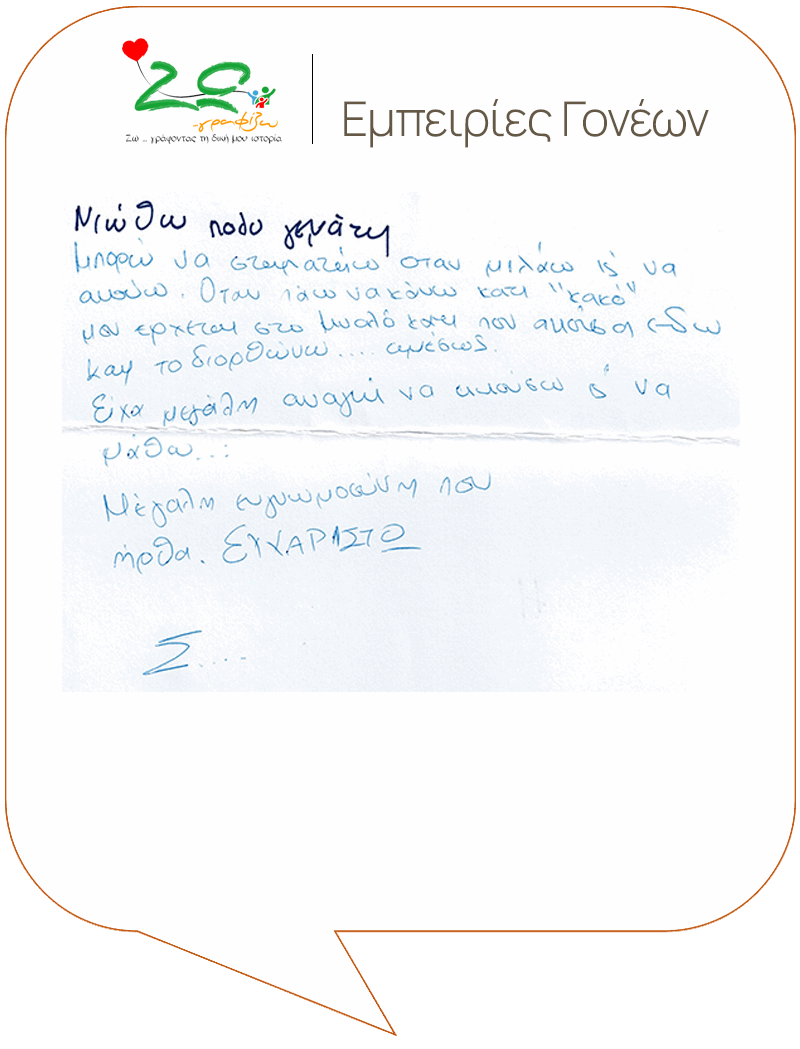 Ζω
...γραφίζω
Ζω ... γράφοντας τη δική μου ιστορία
Εμπειρίες Γονέων
Νιώθω πολυ γεμάτη
Μπορώ να σταματάω όταν μιλάω κ' να
ακούω. Όταν πάω να κάνω κατι "κακό"
μου ερχεται στο μυαλό κατι που ακουσα εδω
και το διορθώνω.... αμέσως.
Είχα μεγάλη αναγκη να ακούσω κ' να
μάθω...
Μεγάλη ευγνωμοσύνη που
ήρθα. ΕΥΧΑΡΙΣΤΩ
Σ....